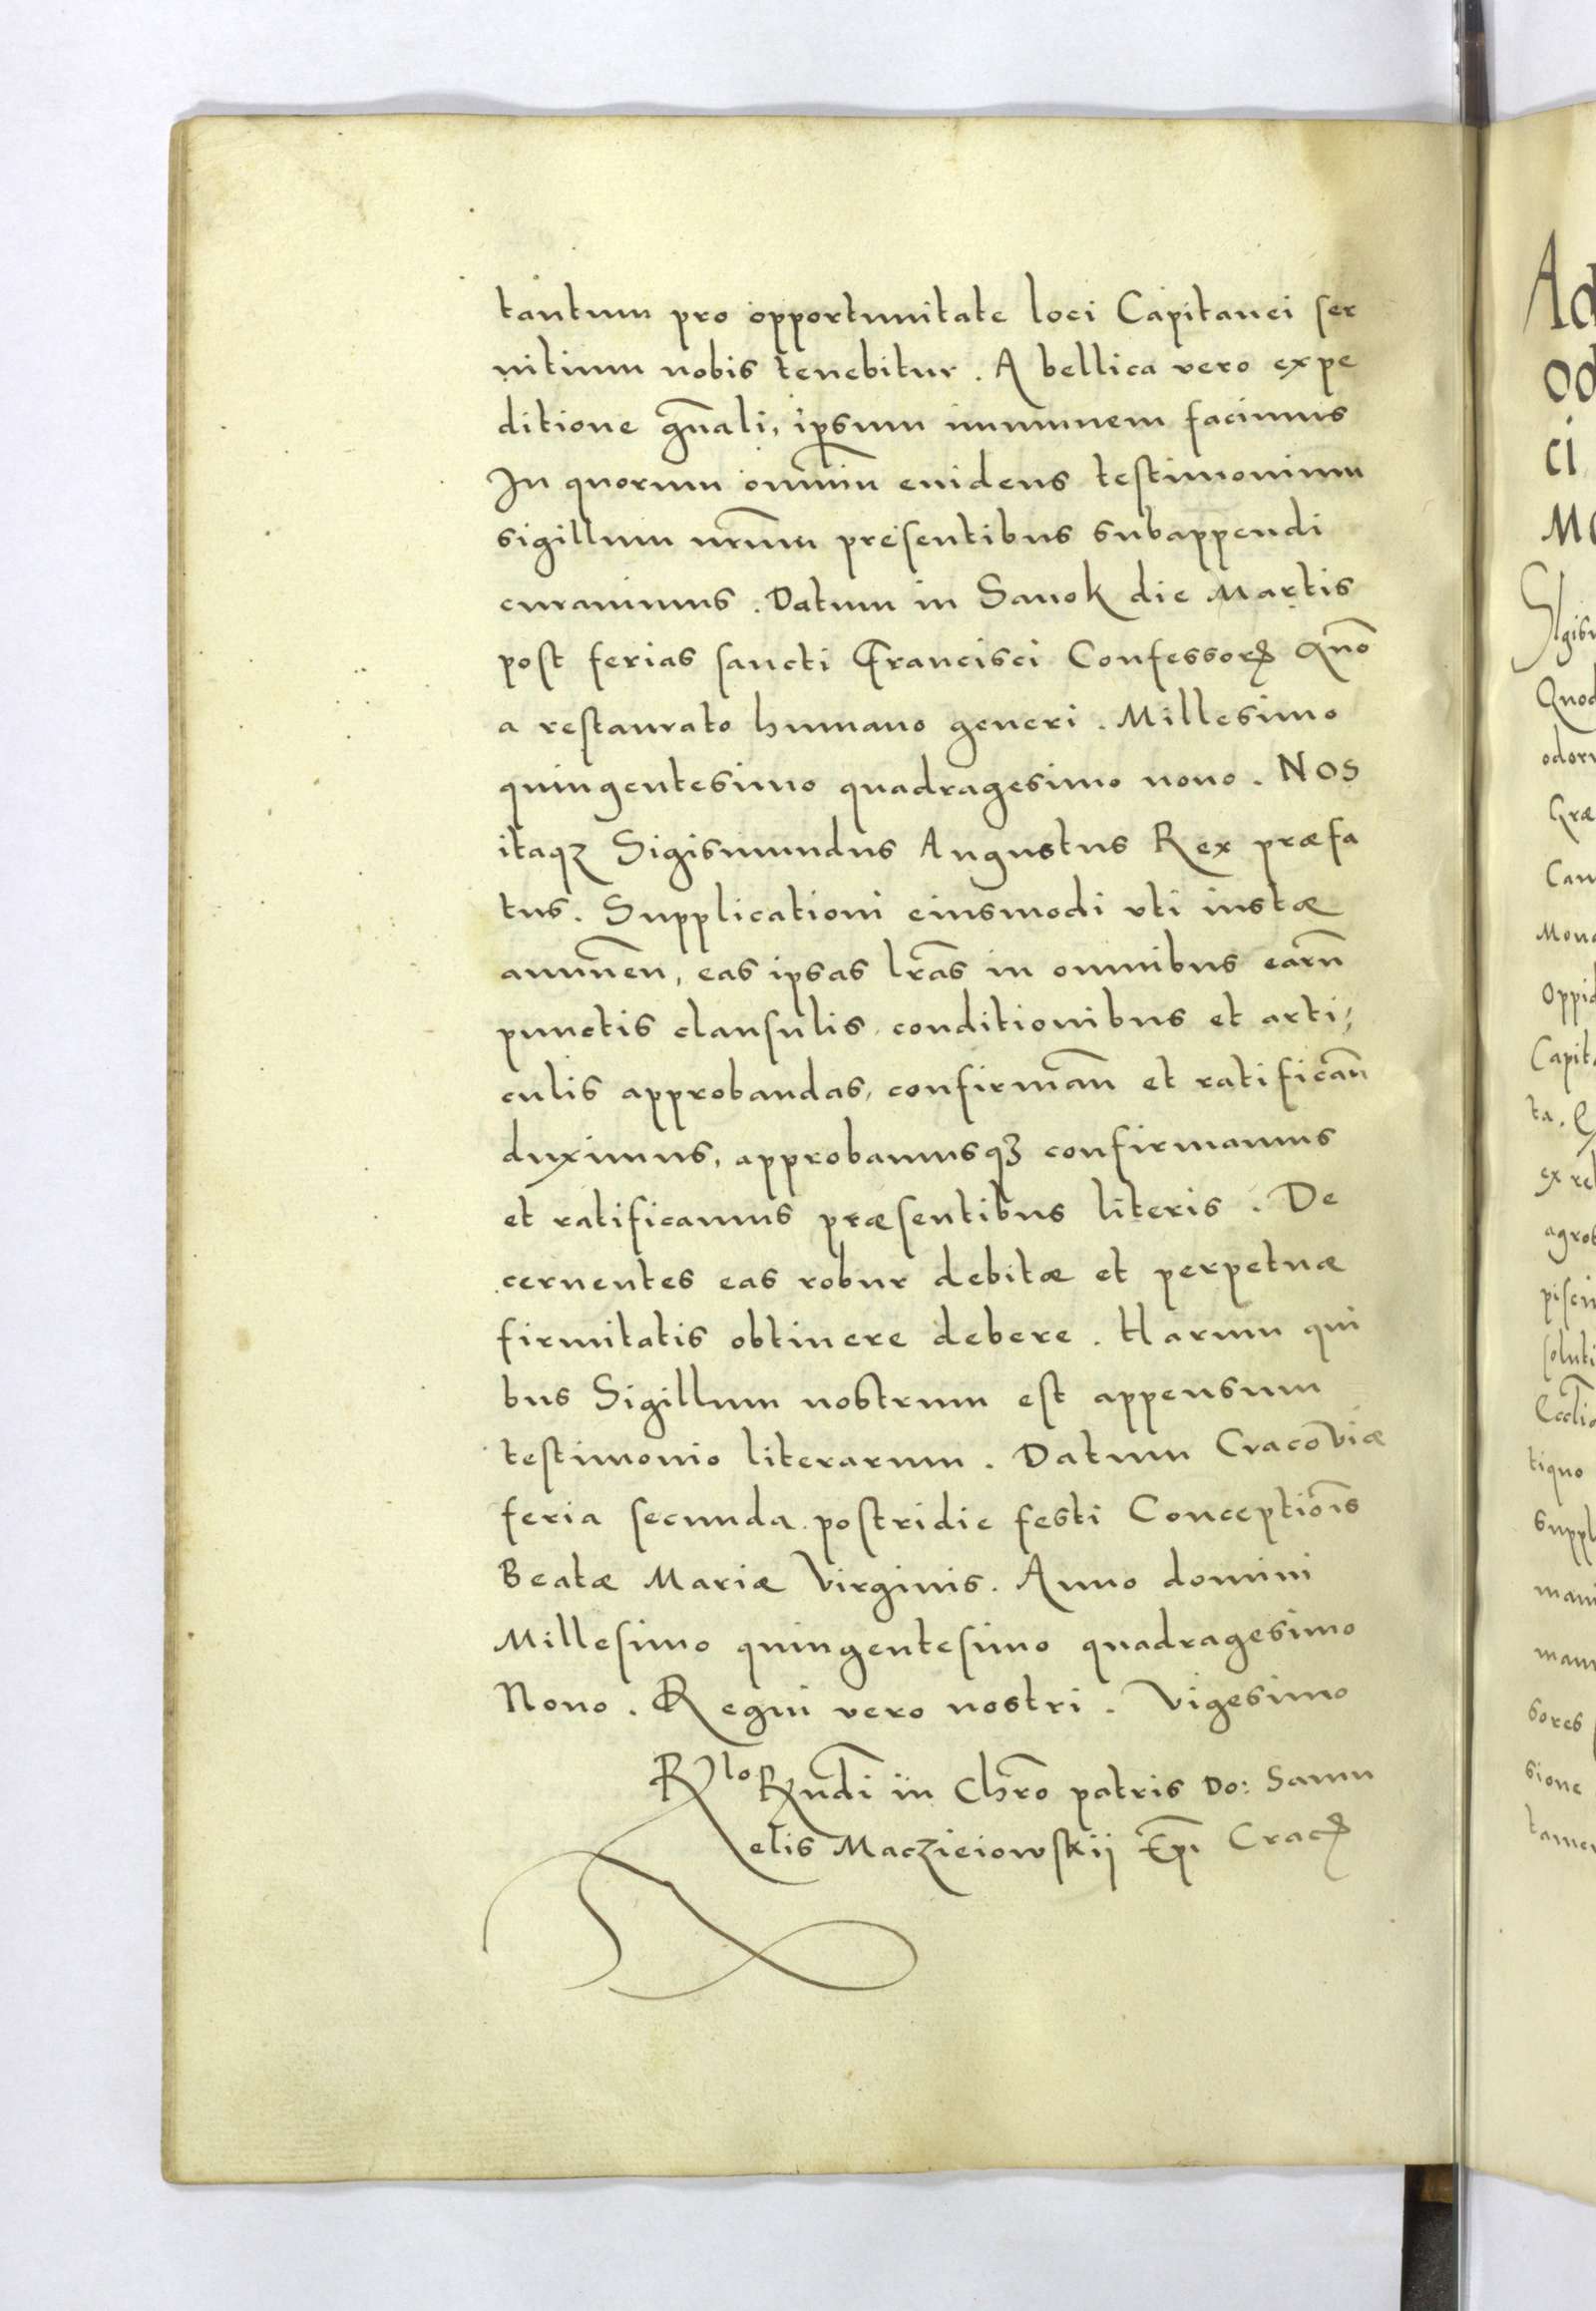 tantum pro opportunitate loci Capitanei ser
uitium nobis tenebitur. A bellica vero expe
ditione gnãali, ipsum immunem facimus
In quorum omniũ euidens testimonium
sigillum nrũm presentibus subappendi
curauimus. Datum in Sanok die Martis
post ferias sancti Francisci Confessorꝭ Anõ
a restaurato humano generi. Millesimo
quingentesimo quadragesimo nono. NOS
itaqꝫ Sigismundus Augustus Rex præfa
tus. Supplicationi eiusmodi vti iustæ
annuẽn, eas ipsas lrãs in omnibus earũ
punctis clausulis conditionibus et arti;
culis approbandas, confirmãn et ratificãn
duximus, approbamusqꝫ confirmamus
et ratificamus præsentibus literis. De
cernentes eas robur debitæ et perpetuæ
firmitatis obtinere debere. Harum qui
bus Sigillum nostrum est appensum
testimonio literarum. Datum Cracoviæ
feria secunda postridie festi Conceptiõis
Beatæ Mariæ Virginis. Anno domini
Millesimo quingentesimo quadragesimo
Nono. Regni vero nostri. Vigesimo
Rlo Rndĩ in Chrõ patris Do: Samu
elis Maczieiowskij Epĩ Cracꝭ